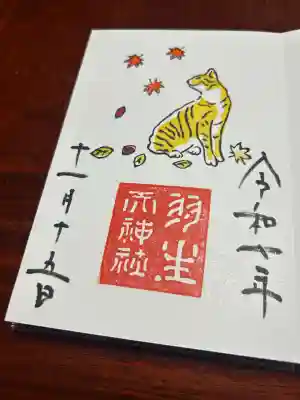 令和年
羽生
天神社
十一月十五日